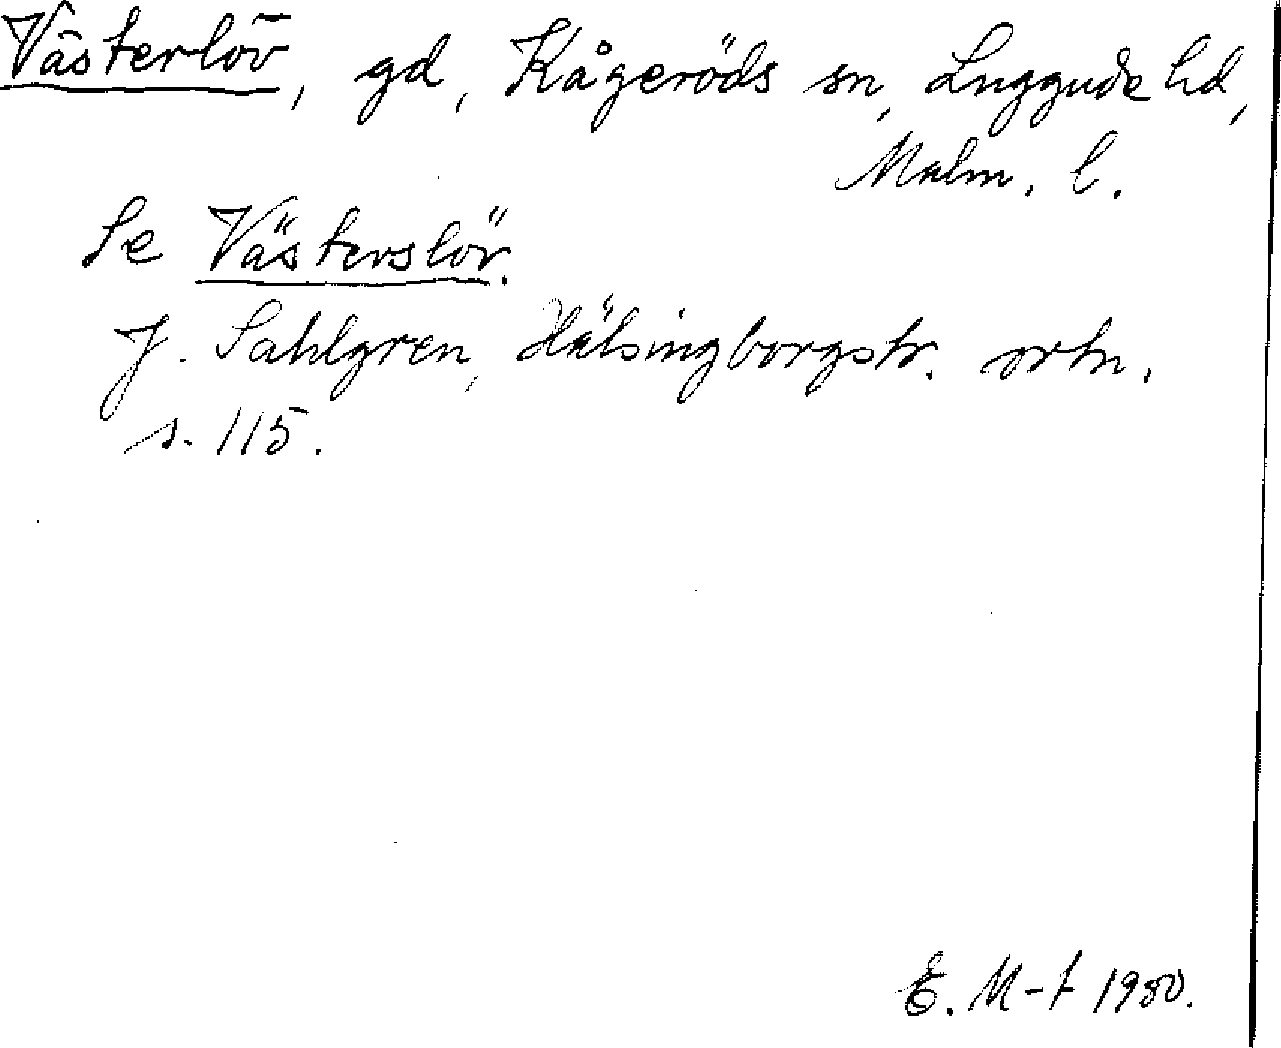 Västerlöv, gd, Kågeröds sn, Luggude hd,
Malm. l.
Se Västerslöv.
J. Sahlgren, Hälsingborgstr. ortn.
s. 115.
E. M-t 1980.